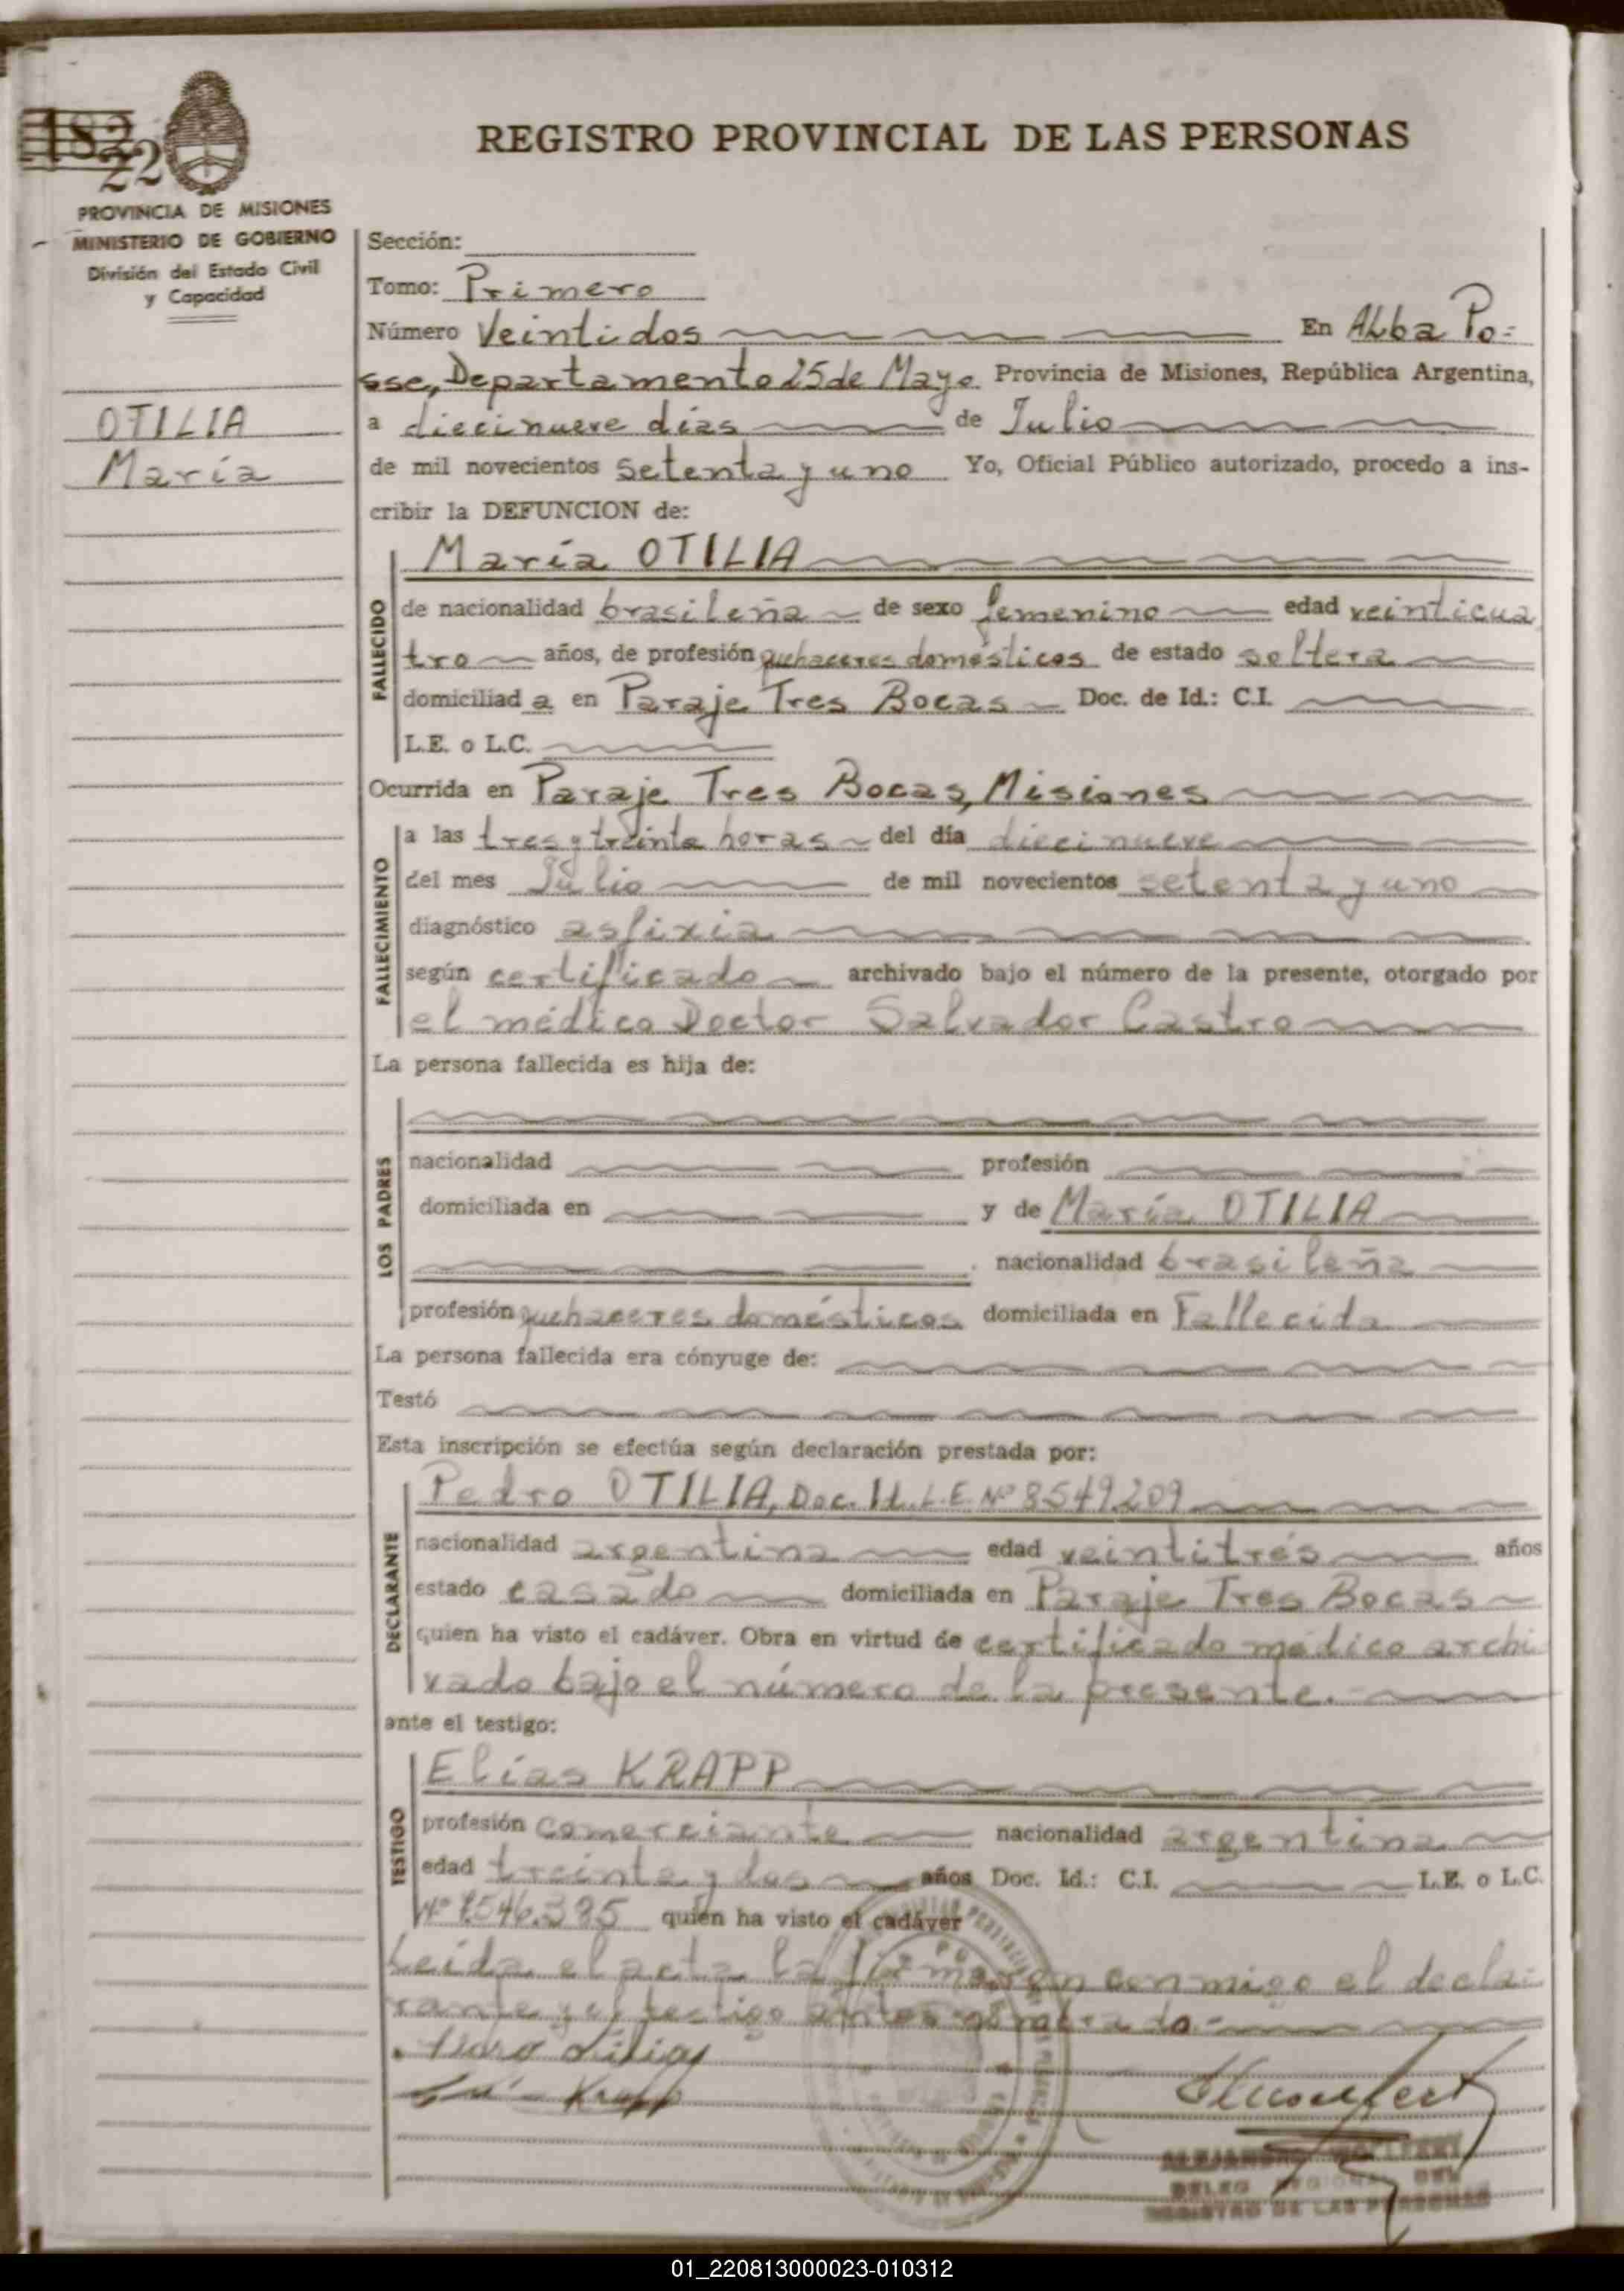 182
22
REGISTRO PROVINCIAL DE LAS PERSONAS
PROVINCIA DE MISIONES
MINISTERIO DE GOBIERNO
División del Estado Civil
y Capacidad
OTILIA
María
Sección:
Tomo: Primero
Número Veintidos En Alba Po=
sse, Departamento 25 de Mayo. Provincia de Misiones, República Argentina,
a diecinueve días de Julio
de mil novecientos setenta y uno Yo, Oficial Público autorizado, procedo a ins-
cribir la DEFUNCION de:
María OTILIA
FALLECIDO
de nacionalidad brasileña de sexo femenino edad veinticua
tro años, de profesión quehaceres domésticos de estado soltera
domiciliad a en Paraje Tres Bocas Doc. de Id.: C.I.
L.E. o L.C.
Ocurrida en Paraje Tres Bocas, Misiones
FALLECIMIENTO
a las tres y treinta horas del día diecinueve
del mes Julio de mil novecientos setenta y uno
diagnóstico asfixia
según certificado archivado bajo el número de la presente, otorgado por
el médico Doctor Salvador Castro
La persona fallecida es hija de:
LOS PADRES
nacionalidad profesión
domiciliada en y de María OTILIA
nacionalidad brasileña
profesión quehaceres domésticos domiciliada en Fallecida
La persona fallecida era cónyuge de:
Testó
Esta inscripción se efectúa según declaración prestada por:
DECLARANTE
Pedro OTILIA, Doc. Id. L.E. Nº 8549209
nacionalidad argentina edad veintitrés años
estado casado domiciliada en Paraje Tres Bocas
quien ha visto el cadáver. Obra en virtud de certificado médico archi
vado bajo el número de la presente.
ante el testigo:
TESTIGO
Elías KRAPP
profesión comerciante nacionalidad argentina
edad treinta y dos años Doc. Id.: C.I. L.E. o L.C.
Nº 7.546.395 quien ha visto el cadáver
Leída el acta la firmaron conmigo el decla-
rante y el testigo antes nombrado.-
Pedro
Krapp
DELEG REGIONAL DEL
REGISTRO DE LAS PERSONAS
01_220813000023-010312